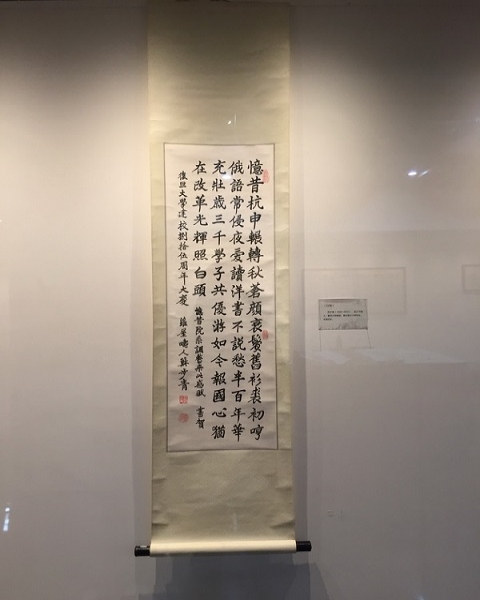 憶昔杭申輾轉秋蒼顏衰鬢舊衫裘初哼
俄語常侵夜愛讀洋書不説愁半百年華
充壯歲三千學子共優游如今報國心猶
在改革光輝照白頭 憶昔院系調整 書賀
復旦大學建校捌拾伍周年大慶 蘿屋疇人蘇步青